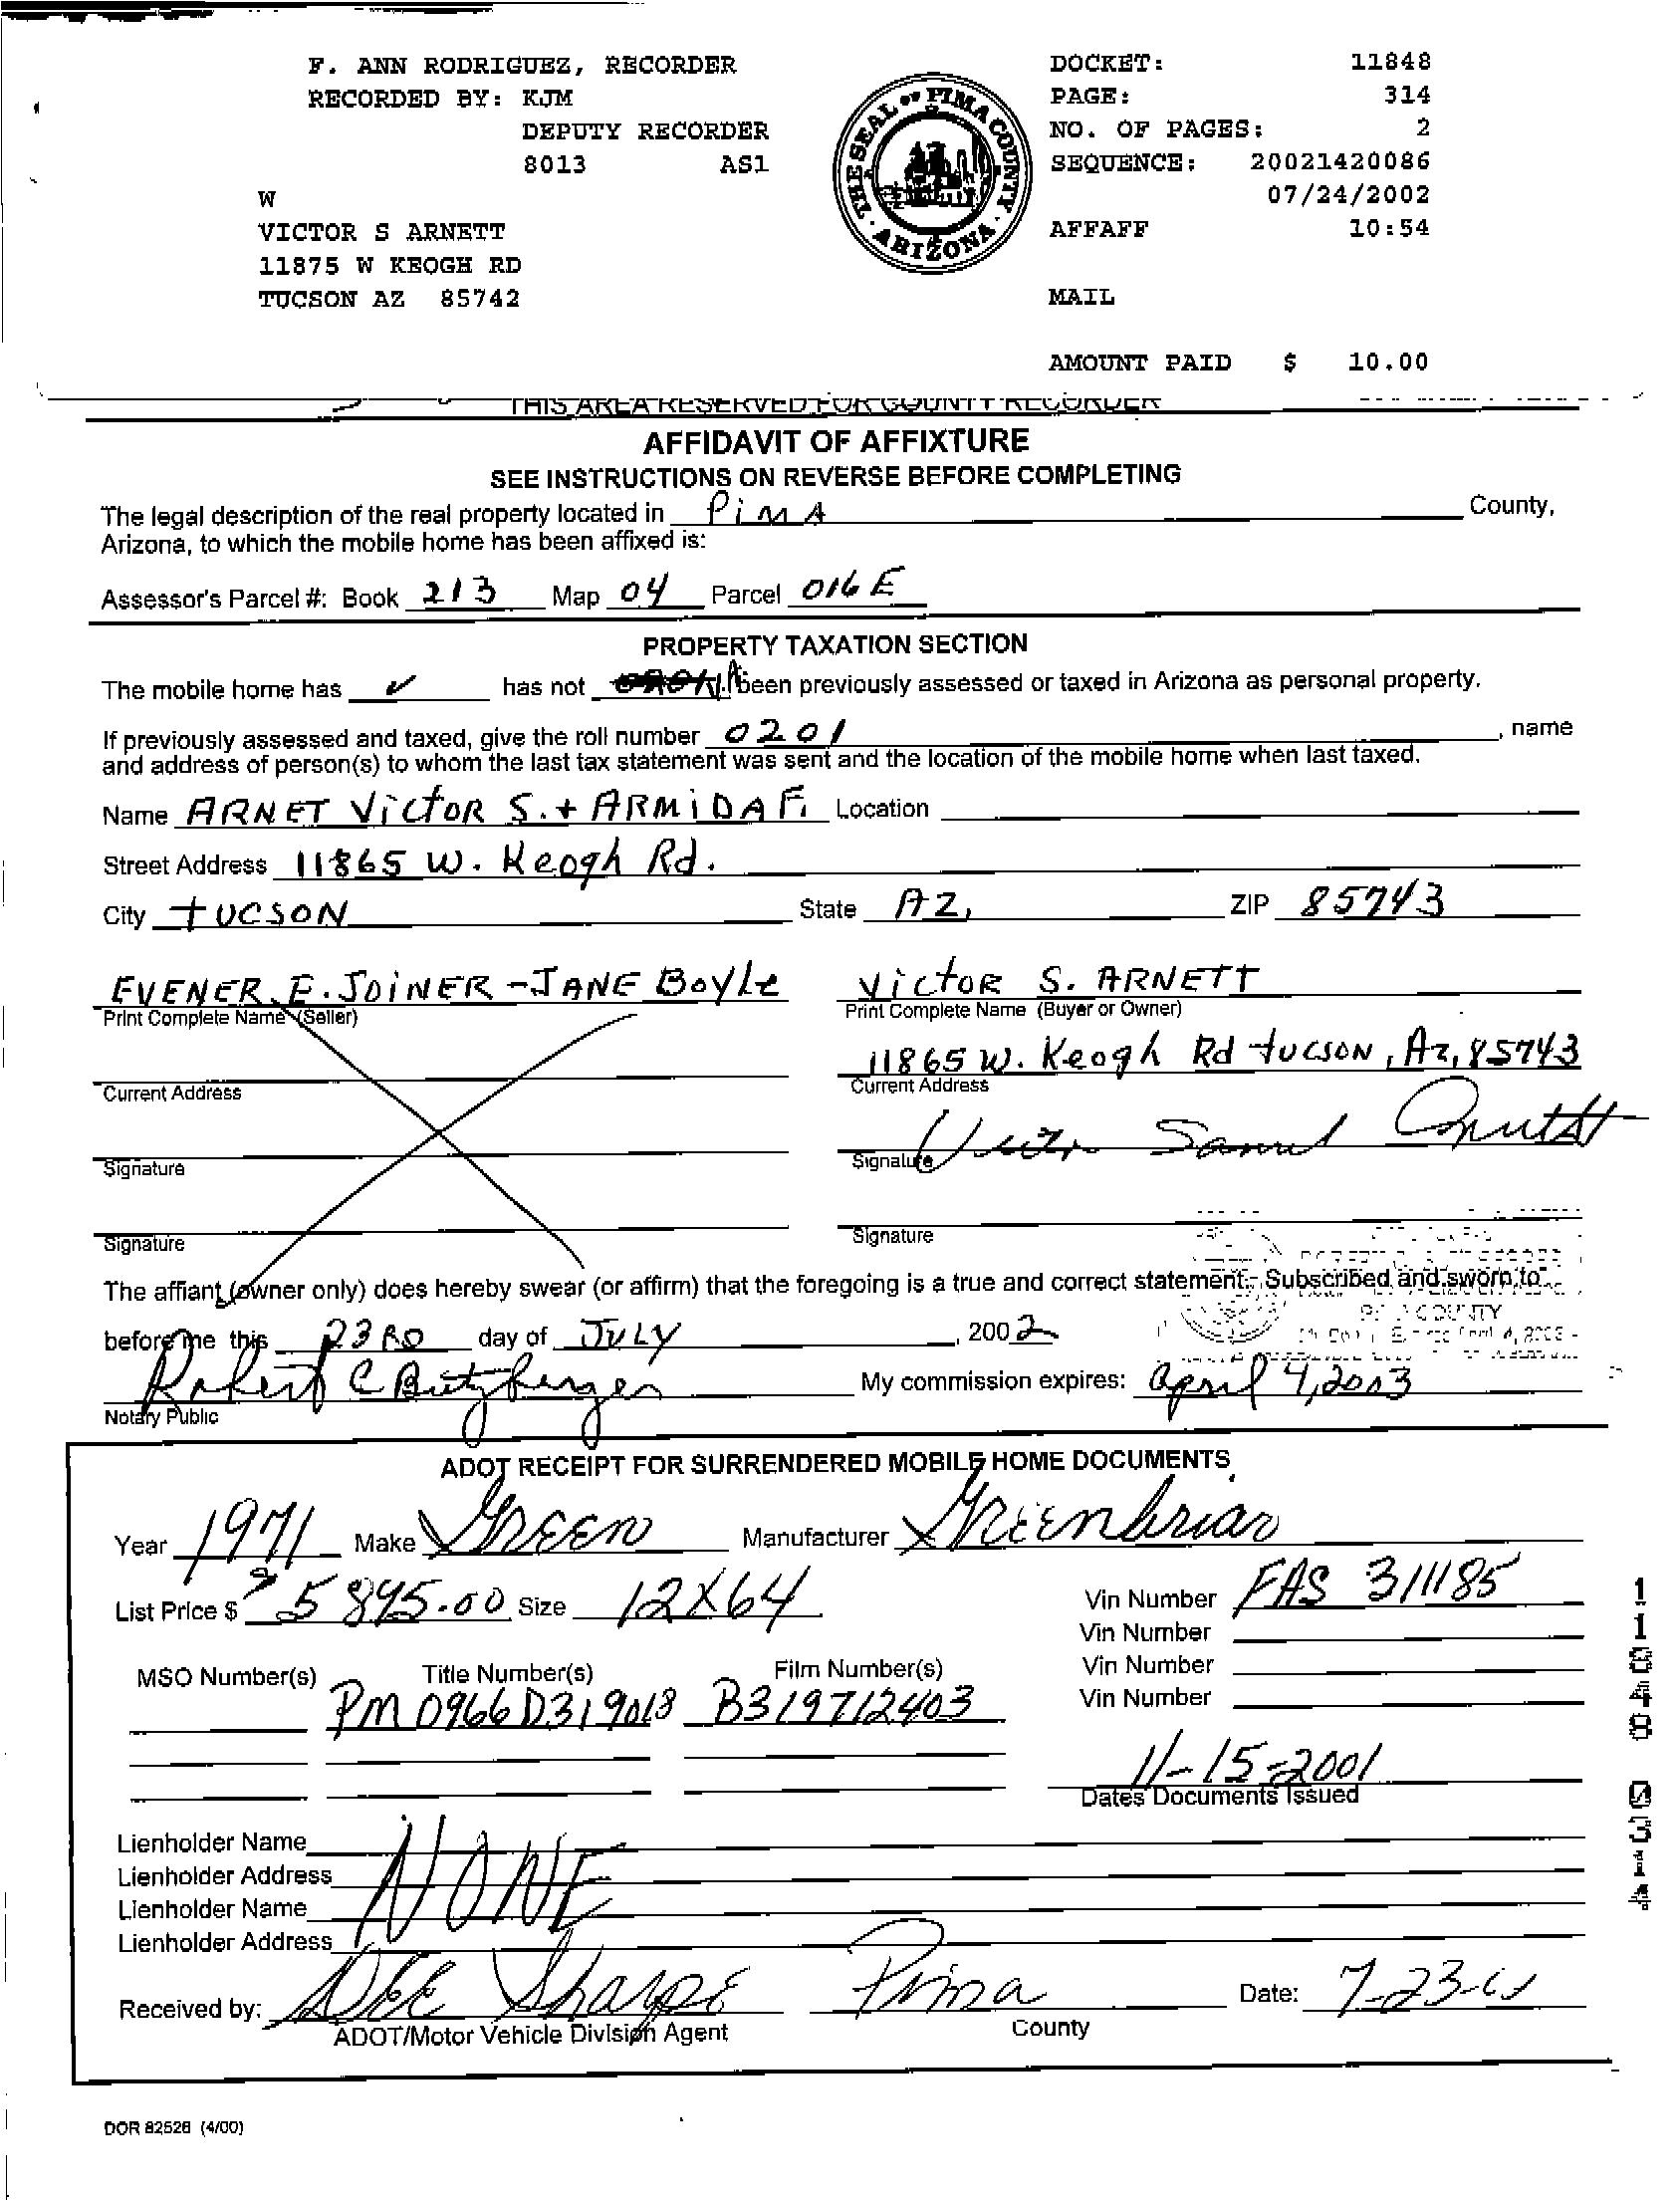 F. ANN RODRIGUEZ, RECORDER
RECORDED BY: KJM
DEPUTY RECORDER
8013 AS1
W
VICTOR S ARNETT
11875 W KEOGH RD
TUCSON AZ 85742
THE SEAL OF PIMA COUNTY
ARIZONA
DOCKET: 11848
PAGE: 314
NO. OF PAGES: 2
SEQUENCE: 20021420086
07/24/2002
AFFAFF 10:54
MAIL
AMOUNT PAID $ 10.00
THIS AREA RESERVED FOR COUNTY RECORDER
AFFIDAVIT OF AFFIXTURE
SEE INSTRUCTIONS ON REVERSE BEFORE COMPLETING
The legal description of the real property located in PiMA County,
Arizona, to which the mobile home has been affixed is:
Assessor's Parcel #: Book 213 Map 04 Parcel 016 E
PROPERTY TAXATION SECTION
The mobile home has ✓ has not been previously assessed or taxed in Arizona as personal property.
If previously assessed and taxed, give the roll number 0201, name
and address of person(s) to whom the last tax statement was sent and the location of the mobile home when last taxed.
Name ARNET VictOR S. + ARMiDA F. Location
Street Address 11865 W. Keogh Rd.
City tUCSON State AZ, ZIP 85743
EVENER E. JOiNER - JANE BoyLe
Print Complete Name (Seller)
VictoR S. ARNETT
Print Complete Name (Buyer or Owner)
11865 W. Keogh Rd tucson, Az, 85743
Current Address
Current Address
Victor Samuel Arnett
Signature
Signature
Signature
Signature
The affiant (owner only) does hereby swear (or affirm) that the foregoing is a true and correct statement. Subscribed and sworn to
before me this 23RD day of JULY, 2002
Robert C Butzberger My commission expires: April 4, 2003
Notary Public
ADOT RECEIPT FOR SURRENDERED MOBILE HOME DOCUMENTS
Year 1971 Make X GREEN Manufacturer X Greenbriar
List Price $ 5895.00 Size 12X64 Vin Number FAS 311185
Vin Number
Vin Number
Vin Number
MSO Number(s) Title Number(s) Film Number(s)
PM 0966D319013 B319712403
11-15-2001
Dates Documents Issued
Lienholder Name NONE
Lienholder Address
Lienholder Name
Lienholder Address
Received by: DEE Sharpe Pima Date: 7-23-
ADOT/Motor Vehicle Division Agent County
11848 0314
DOR 82526 (4/00)